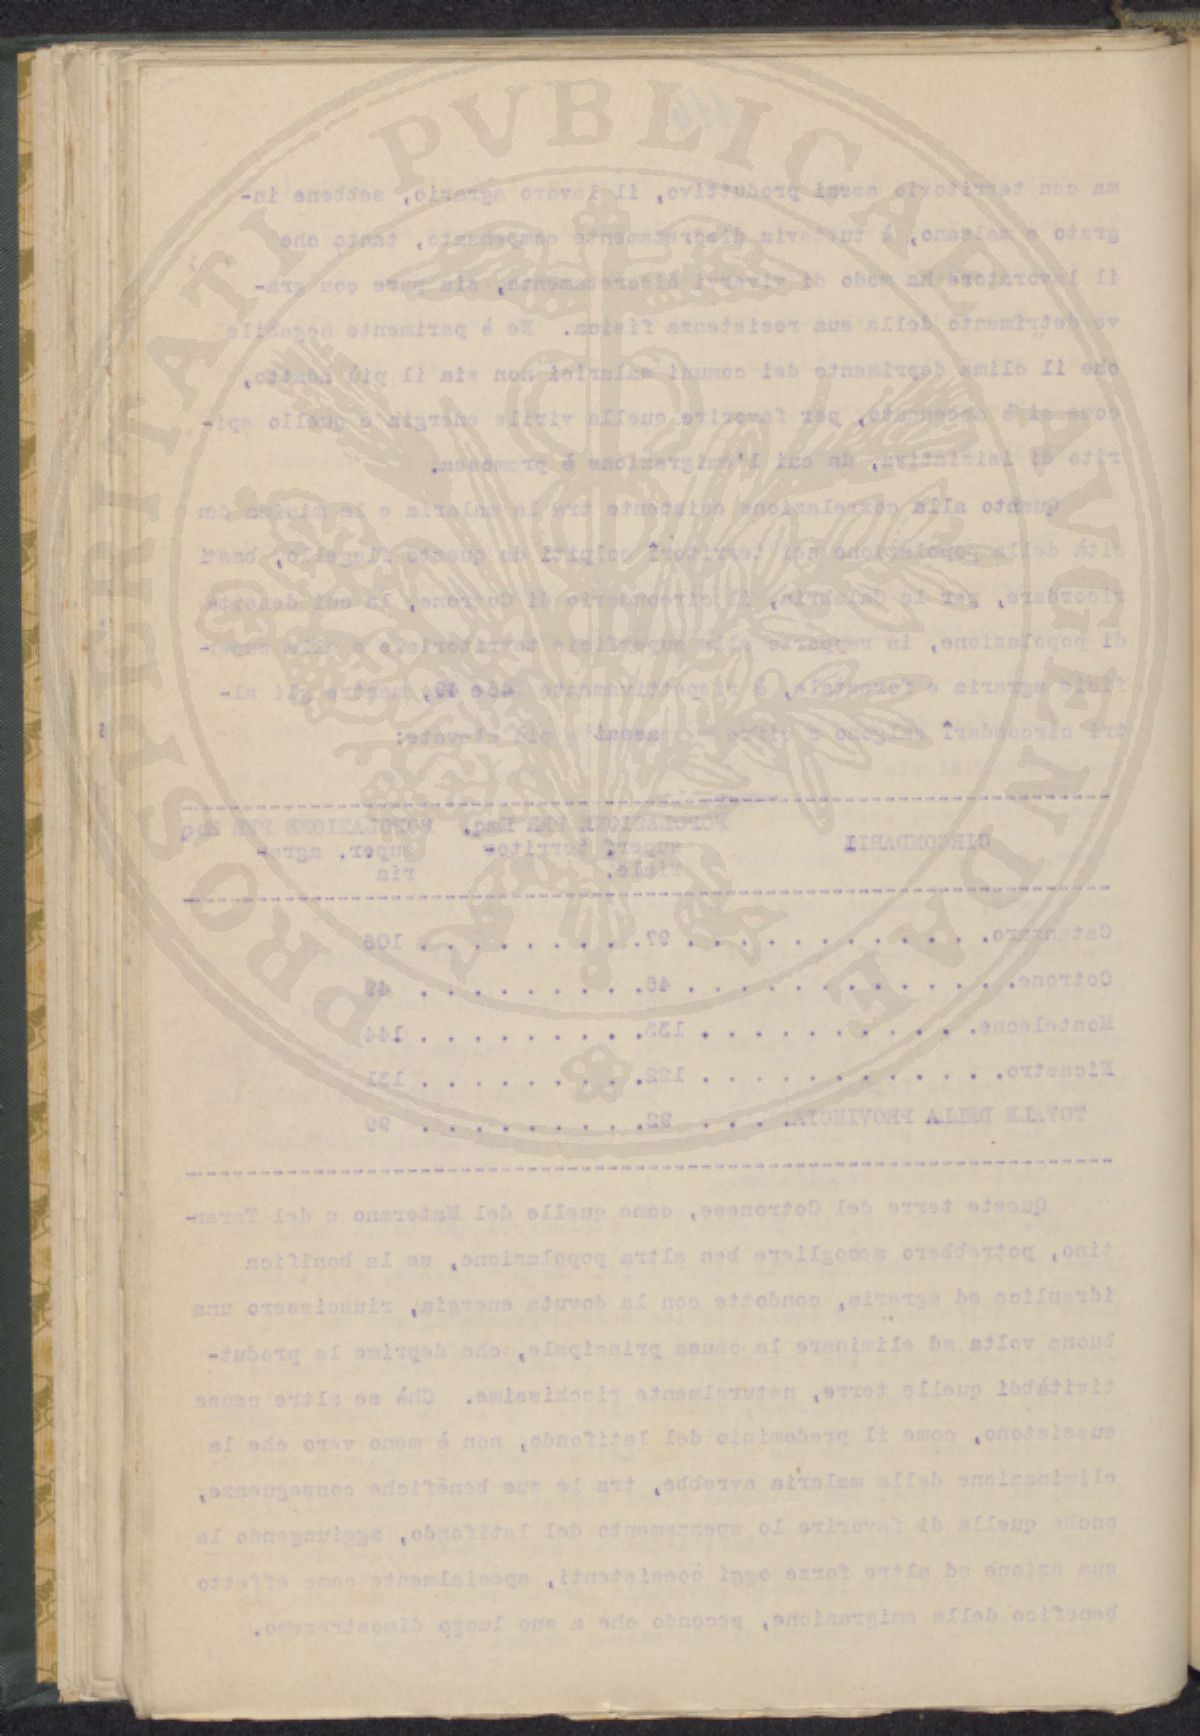 PROSPERITATI PVBLICAE AVGENDAE
116
ma con territorio assai produttivo, il lavoro agrario, sebbene in-
grato e malsano, è tuttavia discretamente compensato, tanto che
il lavoratore ha modo di vivervi discretamente, sia pure con gra-
ve detrimento della sua resistenza fisica. Nè è parimente negabile
che il clima deprimente dei comuni malarici non sia il più adatto,
come si è accennato, per favorire quella virile energia e quello spi-
rito di iniziativa, da cui l'emigrazione è promossa.
Quanto alla correlazione esistente tra la malaria e la minima den
sità della popolazione nei territori colpiti da questo flagello, basti
ricordare, per la Calabria, il circondario di Cotrone, la cui densità
di popolazione, in rapporto alla superficie territoriale e alla super-
ficie agraria e forestale, è rispettivamente 46 e 49, mentre gli al-
tri circondarî salgono a cifre assai più elevate:
CIRCONDARII POPOLAZIONE PER Kmq. POPOLAZIONE PER Kmq
superf territo- super. agra-
riale. ria
Catanzaro. . . . . . . . . . . . 97. . . . . . . . . . 106
Cotrone. . . . . . . . . . . . . 46. . . . . . . . . . 49
Monteleone. . . . . . . . . . . . 133. . . . . . . . . . 144
Nicastro. . . . . . . . . . . . . 122. . . . . . . . . . 131
TOTALE DELLA PROVINCIA. . . . . 92. . . . . . . . . . 99
Queste terre del Cotronese, come quelle del Materano e del Taran-
tino, potrebbero accogliere ben altra popolazione, se la bonifica
idraulica ed agraria, condotte con la dovuta energia, riuscissero una
buona volta ad eliminare la causa principale, che deprime la produt-
tivitàtdi quelle terre, naturalmente ricchissime. Chè se altre cause
sussistono, come il predominio del latifondo, non è meno vero che la
eliminazione della malaria avrebbe, tra le sue benefiche conseguenze,
anche quella di favorire lo spezzamento del latifondo, aggiungendo la
sua azione ad altre forze oggi coesistenti, specialmente come effetto
benefico della emigrazione, secondo che a suo luogo dimostreremo.